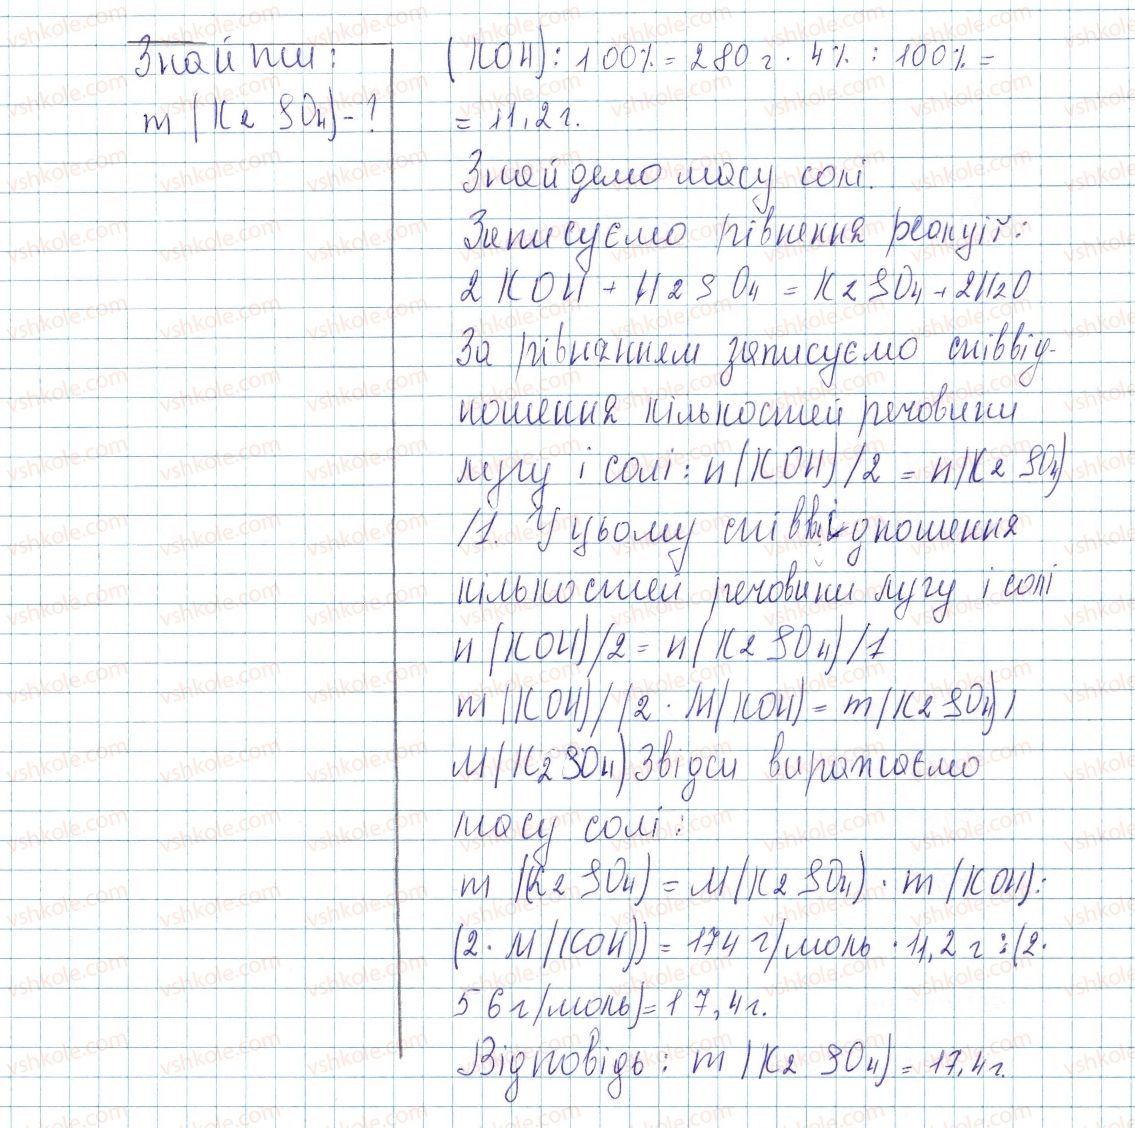 Знайти:
m(K2SO4)-?
(KOH):100%=280г·4%:100%=
=11,2г.
Знайдемо масу солі.
Записуємо рівнення реакції:
2KOH+H2SO4=K2SO4+2H2O
За рівнянням записуємо співвід-
ношення кількостей речовини
лугу і солі: n(KOH)/2=n(K2SO4)
/1. У цьому співвідношення
кількостей речовини лугу і солі
n(KOH)/2=n(K2SO4)/1
m(KOH)/(2·M(KOH)=m(K2SO4)/
M(K2SO4) Звідси виражаємо
масу солі:
m(K2SO4)=M(K2SO4)·m(KOH):
(2·M(KOH))=174г/моль·11,2г:(2·
56г/моль)=17,4г.
Відповідь: m(K2SO4)=17,4г.